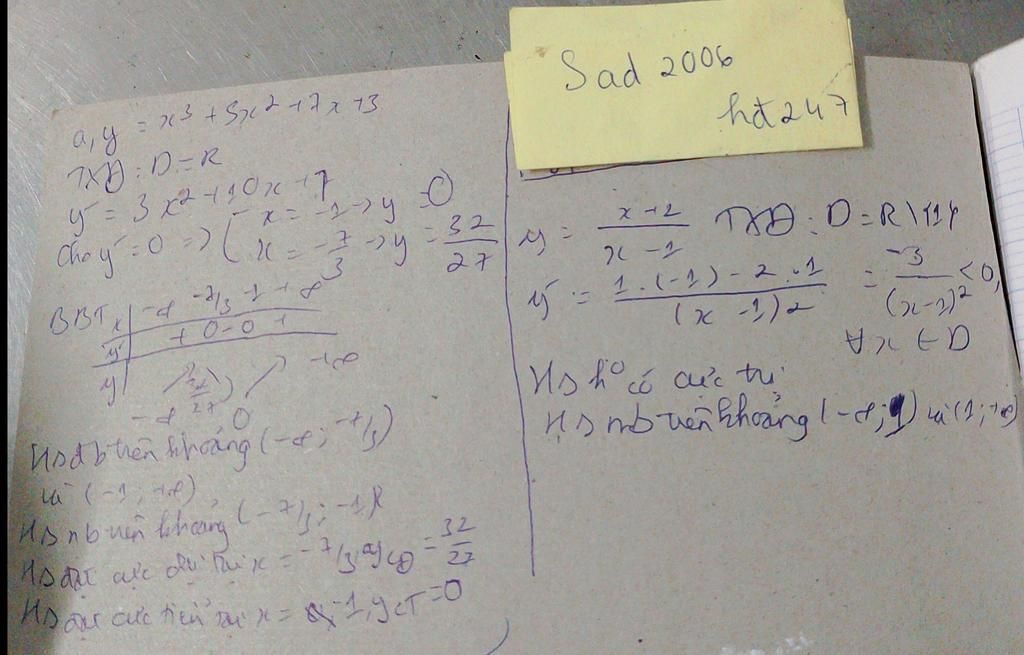 Sad 2006
hđ247
a, y = x³ + 5x² + 7x + 3
TXĐ: D = R
y' = 3x² + 10x + 7
Cho y' = 0 => [ x = -1 -> y = 0
x = -7/3 -> y = 32/27
BBT x | -∞ -7/3 -1 +∞
y' | + 0 - 0 +
y | -∞ ↗ 32/27 ↘ 0 ↗ +∞
Hs đb trên khoảng (-∞; -7/3)
và (-1; +∞)
Hs nb trên khoảng (-7/3; -1)
Hs đạt cực đại tại x = -7/3, yCĐ = 32/27
Hs đạt cực tiểu tại x = -1, yCT = 0
y = x+2 / x-1 TXĐ: D = R\{1}
y' = 1.(-1) - 2.1 / (x-1)2 = -3 / (x-1)² < 0,
∀x ∈ D
Hs k° có cực trị
Hs nb trên khoảng (-∞; 1) và (1; +∞)